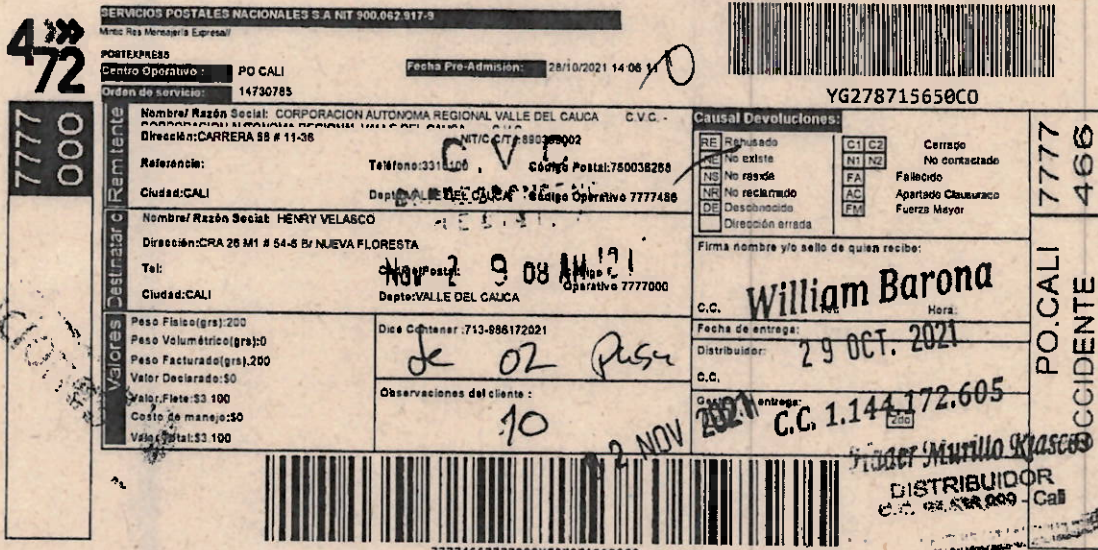 SERVICIOS POSTALES NACIONALES S.A NIT 900.062.917-9
Mintic Res Mensajería Expresa//
472
POSTEXPRESS
Centro Operativo : PO CALI
Fecha Pre-Admisión: 28/10/2021 14:06
Orden de servicio: 14730785
YG278715650CO
7777
000
Remitente
Nombre/ Razón Social: CORPORACION AUTONOMA REGIONAL VALLE DEL CAUCA C.V.C. -
Dirección:CARRERA 56 # 11-36
NIT/C.C/T.I:890399002
Referencia:
Teléfono:3310100
Código Postal:760036258
Ciudad:CALI
Depto:VALLE DEL CAUCA
Código Operativo 7777466
C.V.C.
Destinatario
Nombre/ Razón Social: HENRY VELASCO
Dirección:CRA 26 M1 # 54-6 B/ NUEVA FLORESTA
Tel:
Código Postal:
Código Operativo 7777000
Ciudad:CALI
Depto:VALLE DEL CAUCA
NOV 2 9 08 AM
Valores
Peso Físico(grs):200
Peso Volumétrico(grs):0
Peso Facturado(grs):200
Valor Declarado:$0
Valor Flete:$3.100
Costo de manejo:$0
Valor Total:$3.100
Dice Contener :713-986172021
de 02 Pusu
Observaciones del cliente :
10
Causal Devoluciones:
RE Rehusado
NE No existe
NS No reside
NR No reclamado
DE Desconocido
Dirección errada
C1 C2 Cerrado
N1 N2 No contactado
FA Fallecido
AC Apartado Clausurado
FM Fuerza Mayor
Firma nombre y/o sello de quien recibe:
William Barona
C.C.
Hora:
Fecha de entrega:
29 OCT. 2021
Distribuidor:
C.C.
C.C. 1.144.172.605
2 NOV 2021
DISTRIBUIDOR
7777
466
PO.CALI
OCCIDENTE